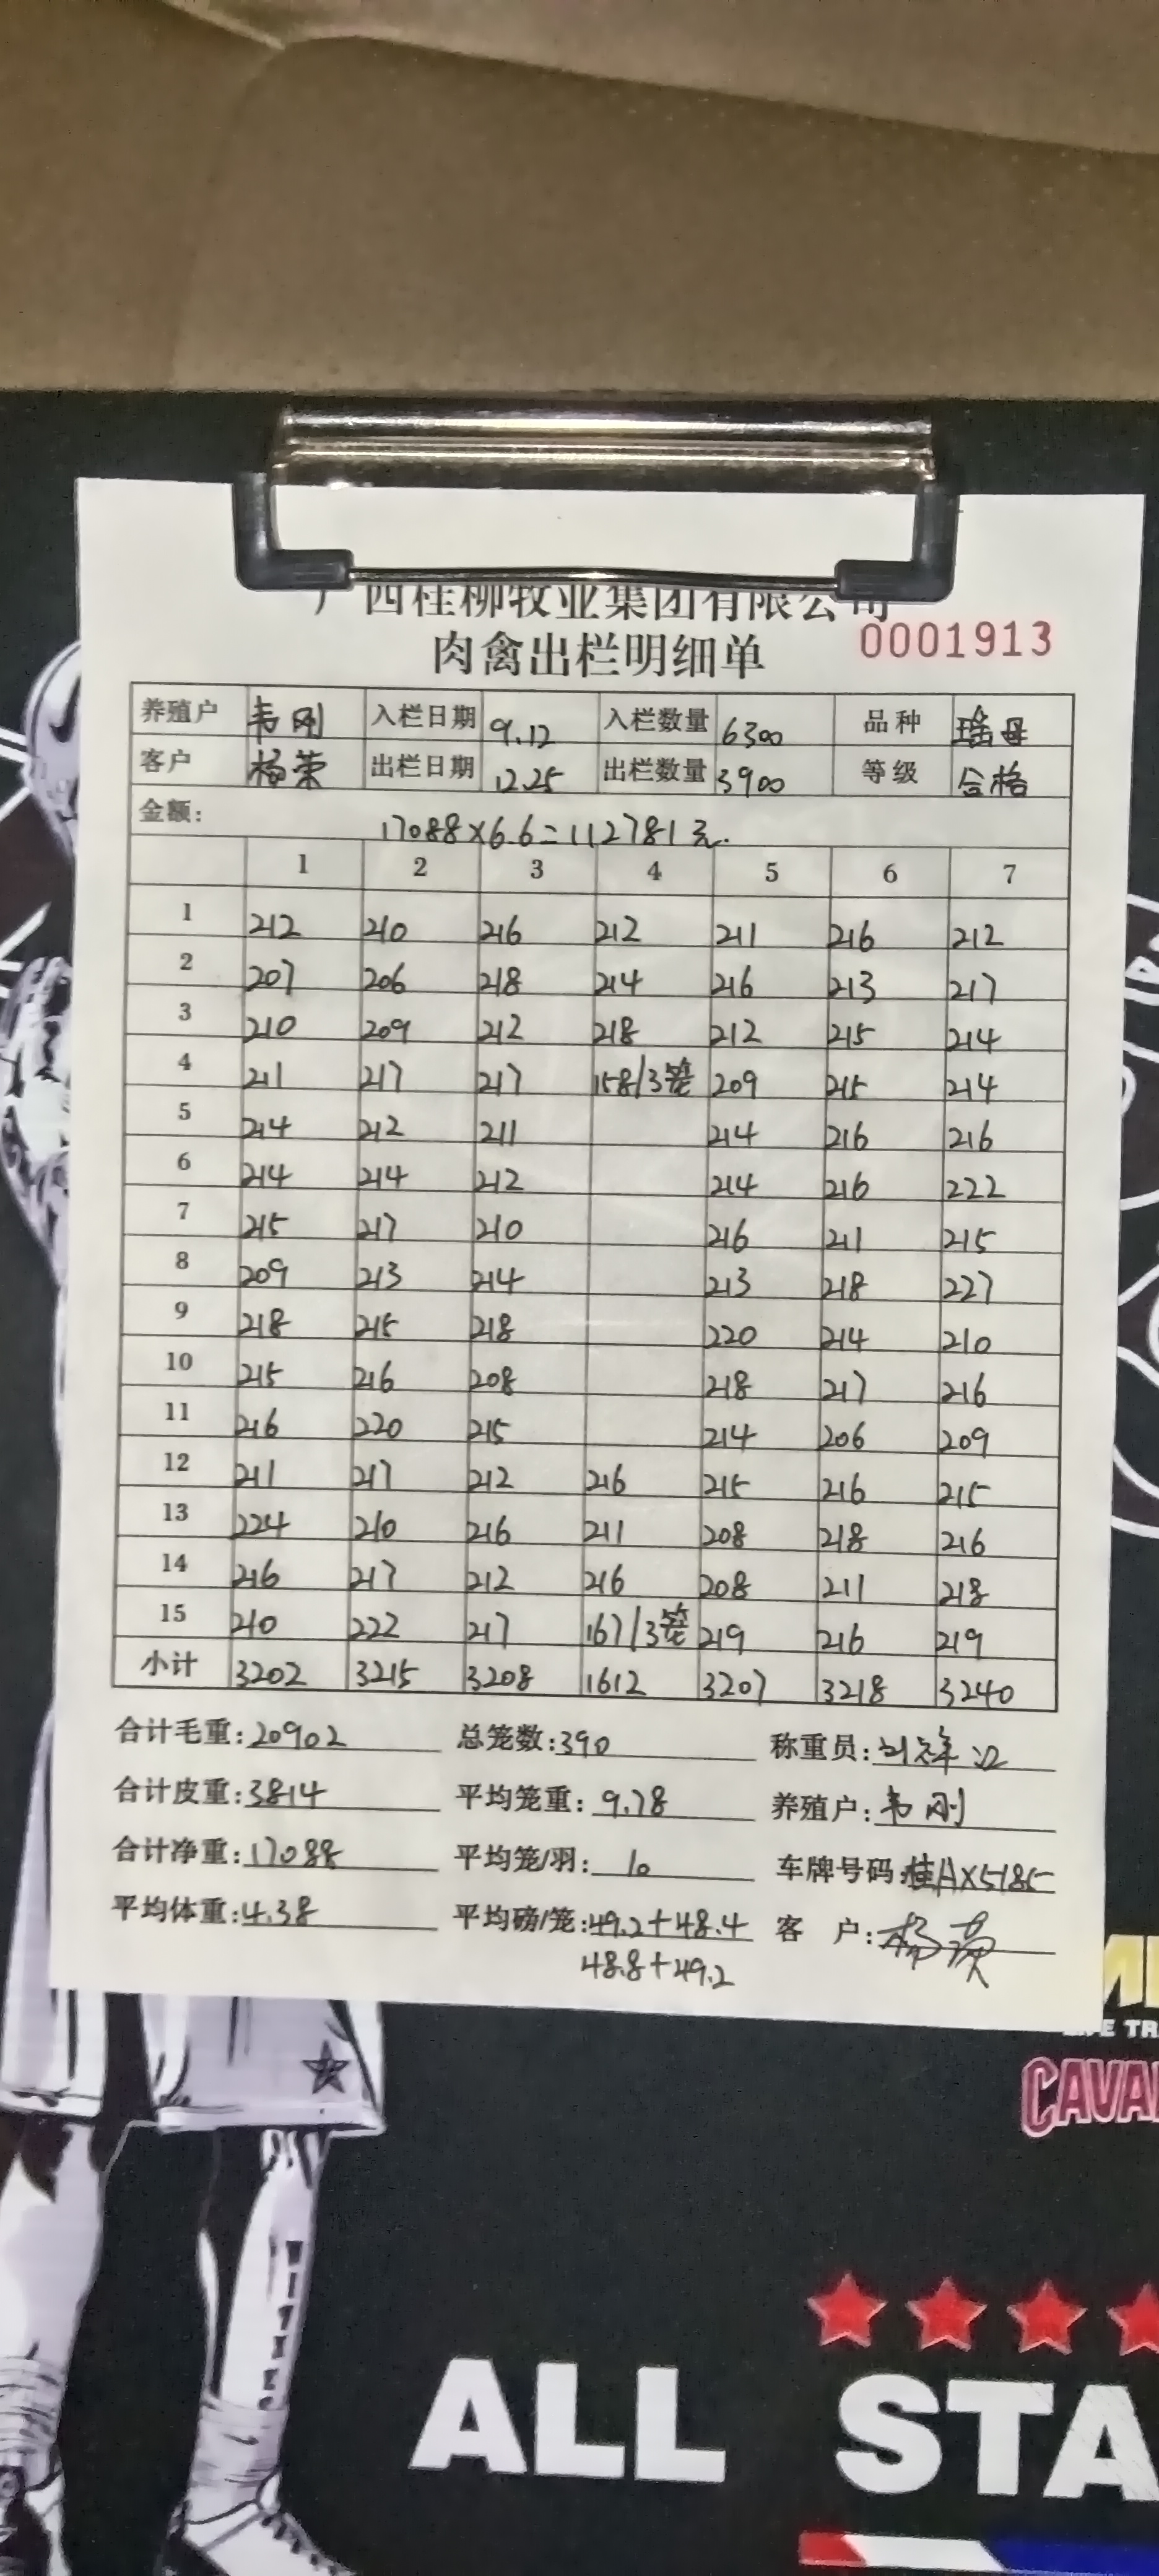 广西桂柳牧业集团有限公司
肉禽出栏明细单 0001913
养殖户 韦刚 入栏日期 9.12 入栏数量 6300 品种 瑶母
客户 杨荣 出栏日期 12.25 出栏数量 3900 等级 合格
金额: 17088×6.6=112781元.
1 2 3 4 5 6 7
1 212 210 216 212 211 216 212
2 207 206 218 214 216 213 217
3 210 209 212 218 212 215 214
4 211 217 217 158/3笼 209 215 214
5 214 212 211 214 216 216
6 214 214 212 214 216 222
7 215 217 210 216 211 215
8 209 213 214 213 218 227
9 218 215 218 220 214 210
10 215 216 208 218 217 216
11 216 220 215 214 206 209
12 211 217 212 216 215 216 215
13 224 210 216 211 208 218 216
14 216 217 212 216 208 211 218
15 210 222 217 167/3笼 219 216 219
小计 3202 3215 3208 1612 3207 3218 3240
合计毛重: 20902 总笼数: 390 称重员:
合计皮重: 3814 平均笼重: 9.78 养殖户: 韦刚
合计净重: 17088 平均笼/羽: 10 车牌号码: 桂AX5185
平均体重: 4.38 平均磅/笼: 49.2+48.4 客 户: 杨荣
48.8+49.2
CAVA
ALL STA